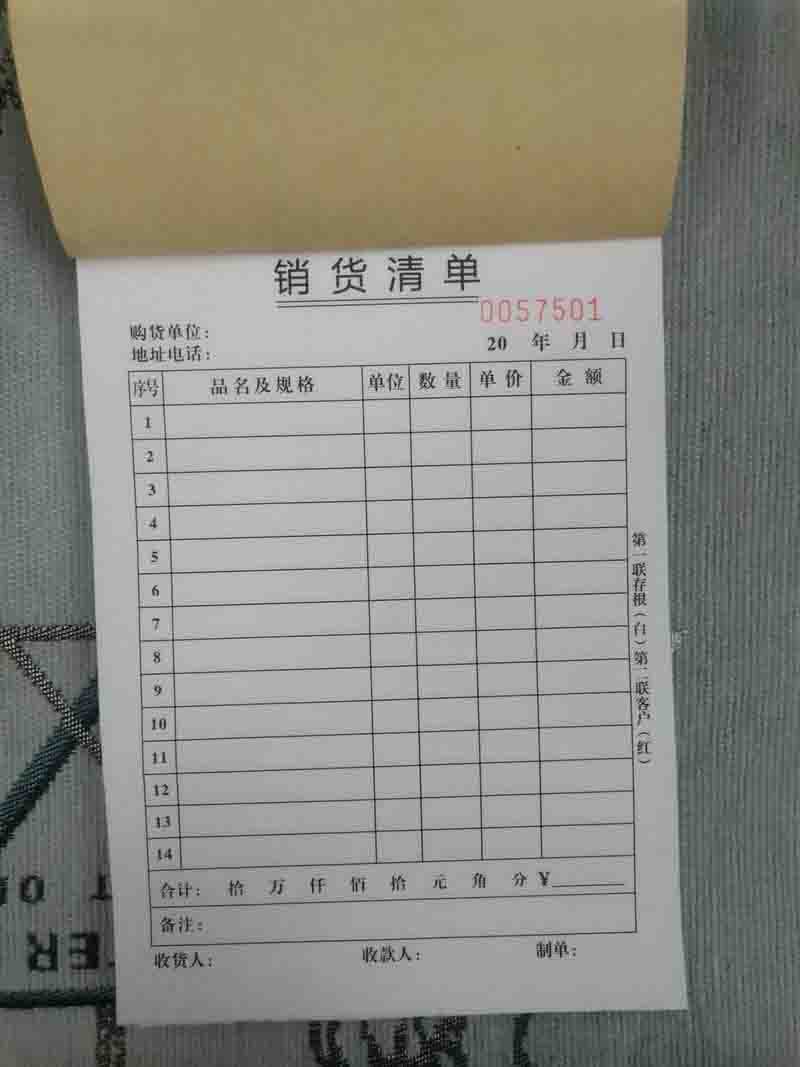 销货清单
0057501
购货单位：
地址电话：
20 年 月 日
序号 品名及规格 单位 数量 单价 金额
1
2
3
4
5
6
7
8
9
10
11
12
13
14
合计： 拾 万 仟 佰 拾 元 角 分 ¥
备注：
收货人： 收款人： 制单：
第一联存根（白）第二联客户（红）